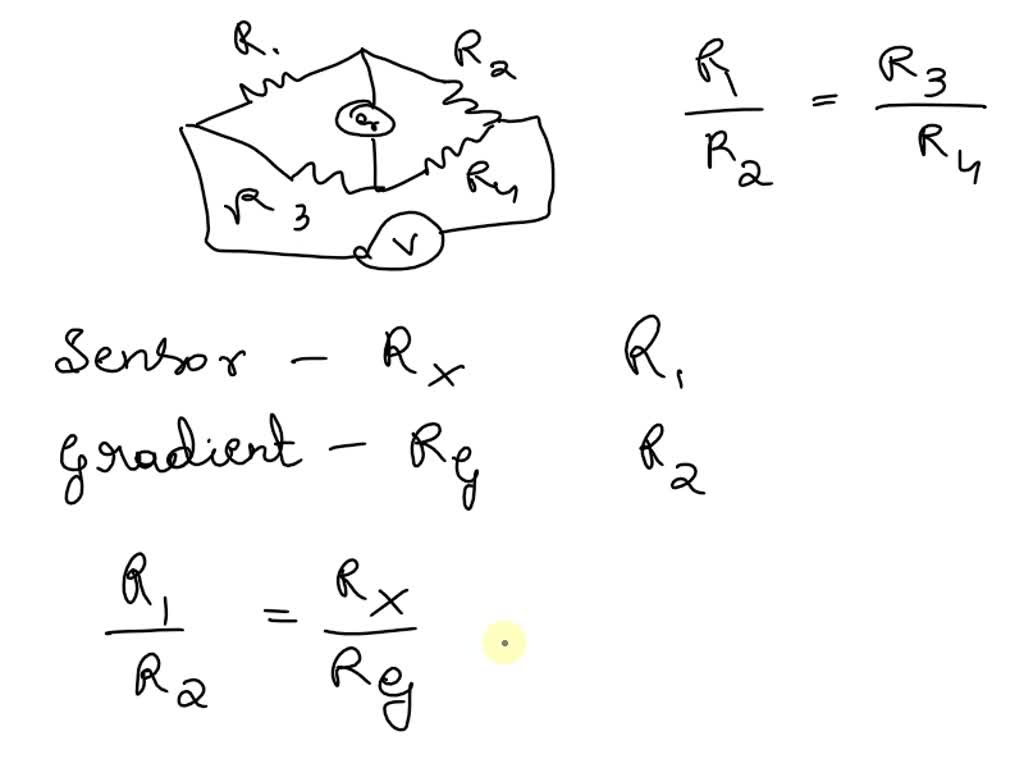 R1
R2
R3
R4
V
R1 / R2 = R3 / R4
Sensor – Rx R1
Gradient – Rg R2
R1 / R2 = Rx / Rg